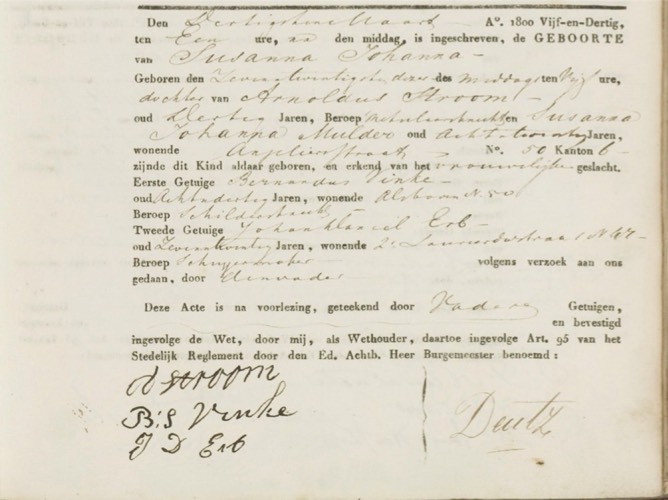 Den Dertigsten Maart Aº. 1800 Vijf-en-Dertig,
ten Een ure, na den middag, is ingeschreven, de GEBOORTE
van Susanna Johanna
Geboren den Zevenentwintigste dezer des middags ten Vijf ure,
dochter van Arnoldus Stroom
oud Dertig Jaren, Beroep en Susanna
Johanna Mulder oud Acht-twintig Jaren,
wonende Anjelierstraat Nº. 50 Kanton 6
zijnde dit Kind aldaar geboren, en erkend van het vrouwelijke geslacht.
Eerste Getuige Bernardus Vinke
oud Achtendertig Jaren, wonende Alsboven N 50
Beroep Schildersknecht
Tweede Getuige Johan Erb
oud Zevenentwintig Jaren, wonende 2e Laurierdwarsstraat N 47
Beroep Schuijermaker volgens verzoek aan ons
gedaan, door den vader
Deze Acte is na voorlezing, geteekend door Vader en Getuigen,
en bevestigd
ingevolge de Wet, door mij, als Wethouder, daartoe ingevolge Art. 95 van het
Stedelijk Reglement door den Ed. Achtb. Heer Burgemeester benoemd:
A Stroom
B:S Vinke
J D Erb
Deutz